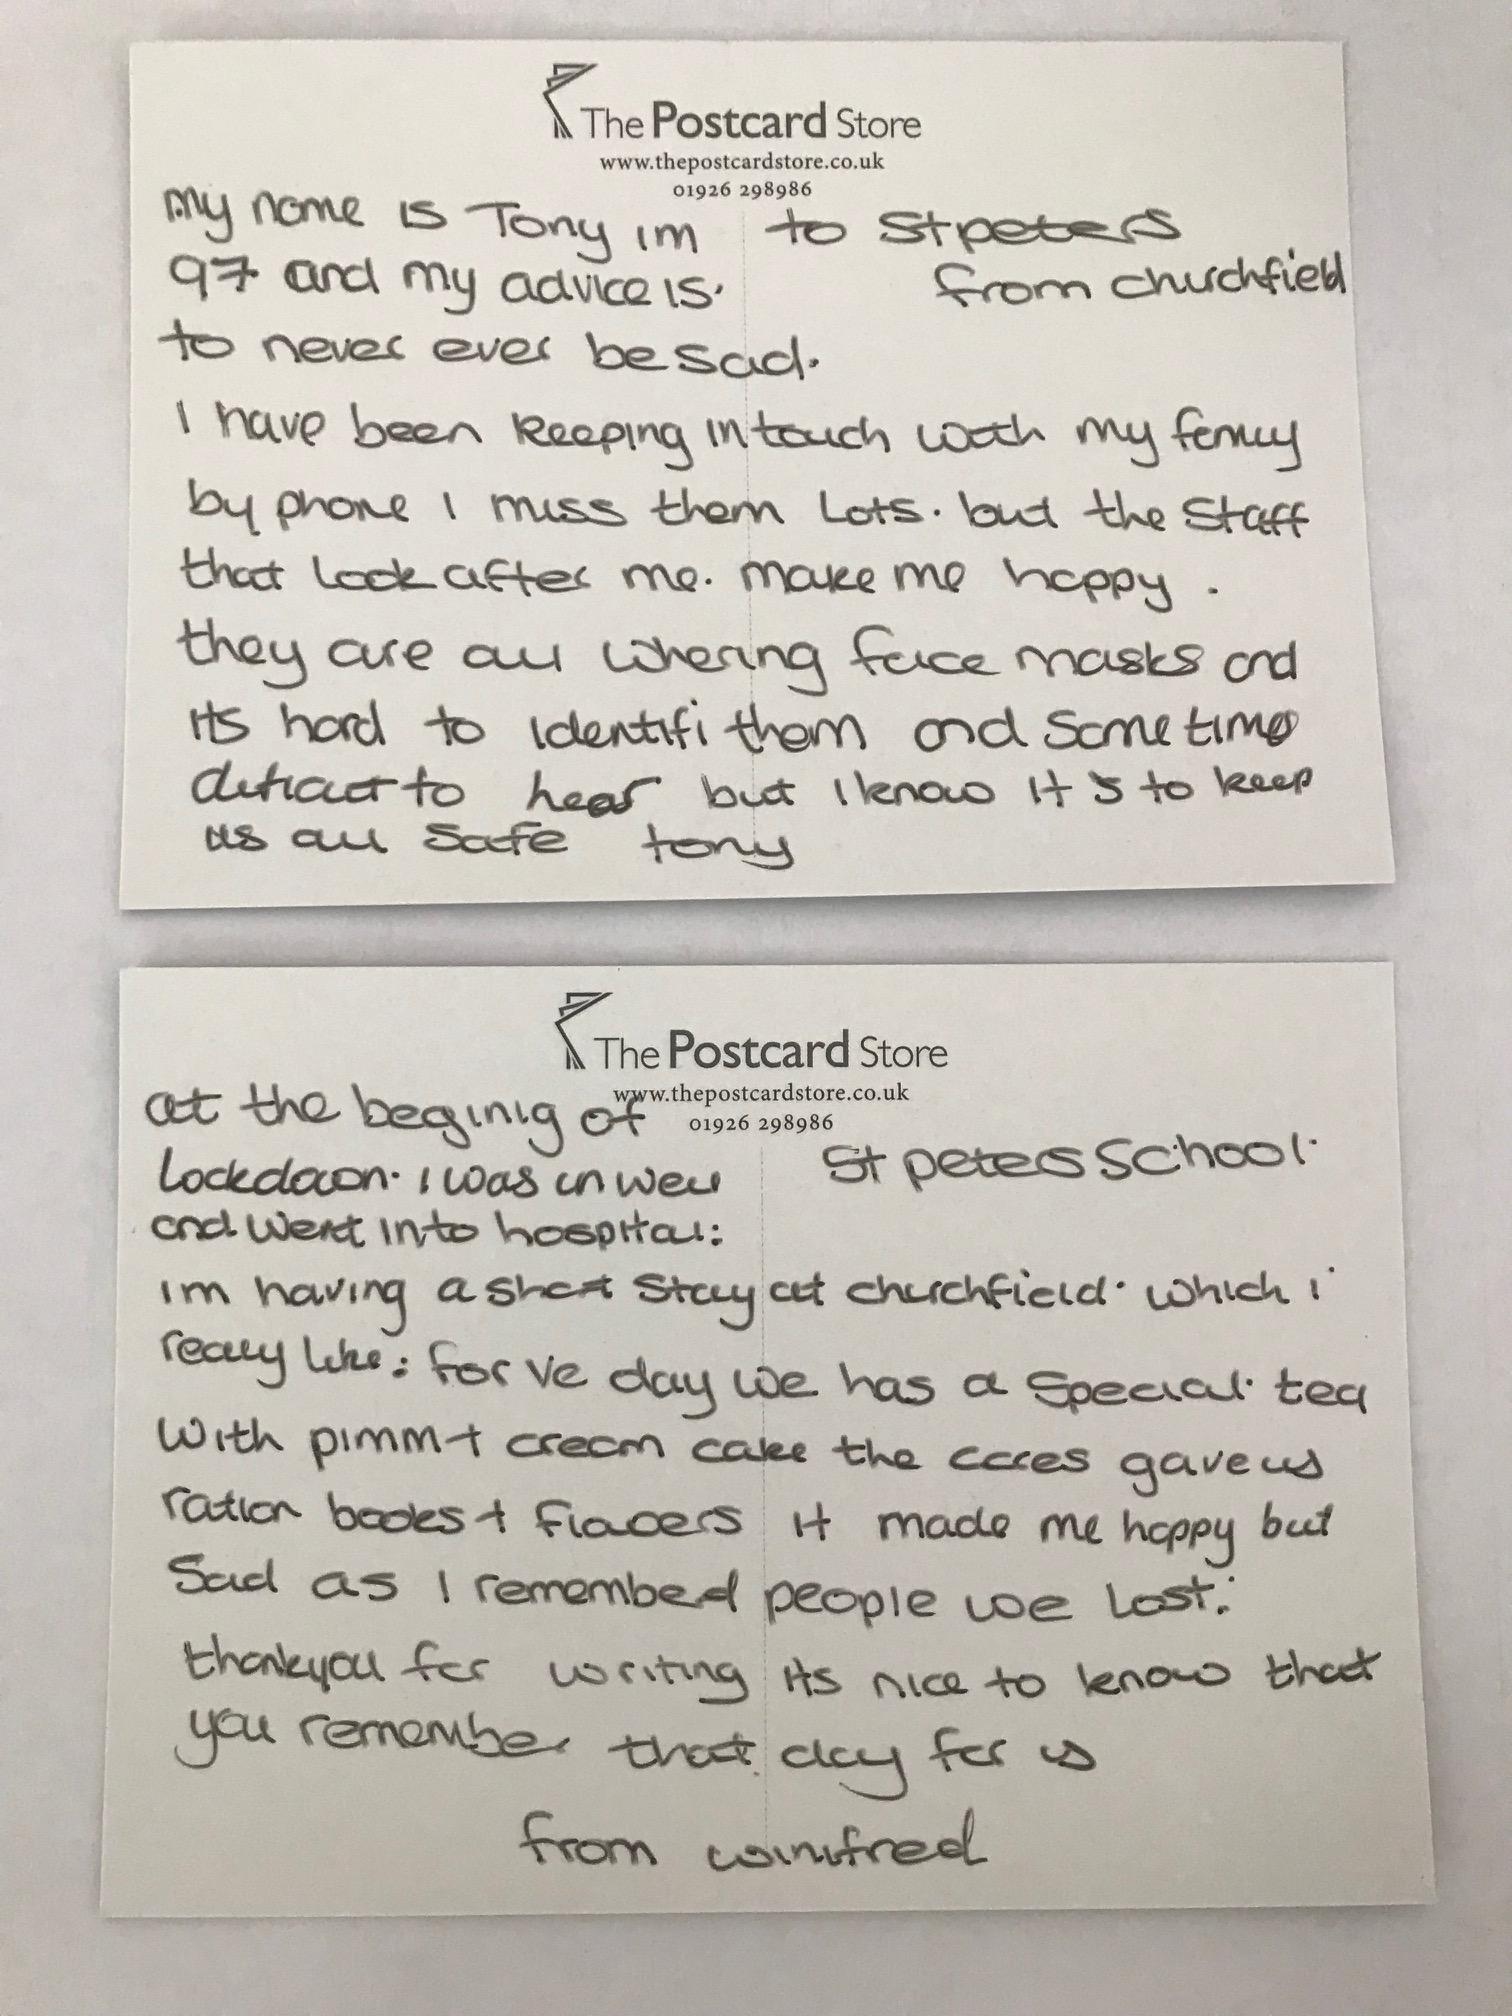 The Postcard Store
www.thepostcardstore.co.uk
01926 298986
My name is Tony im
97 and my advice is.
to St peters
from churchfield
to never ever be sad.
I have been keeping in touch with my femily
by phone I miss them Lots. but the staff
that look after me. make me happy.
they are all whering face masks and
its hard to identifi them and sometimes
to hear but I know it's to keep
us all safe tony
The Postcard Store
www.thepostcardstore.co.uk
01926 298986
at the beginig of
Lockdown. i was un well
and went into hospital:
St peters School.
im having a short stay at churchfield. which i
really like: for ve day we has a special tea
with pimm + cream cake the cares gave us
ration books + flowers it made me happy but
sad as I remembed people we lost:
thankyou for writing its nice to know that
you remember that day for us
from winifred